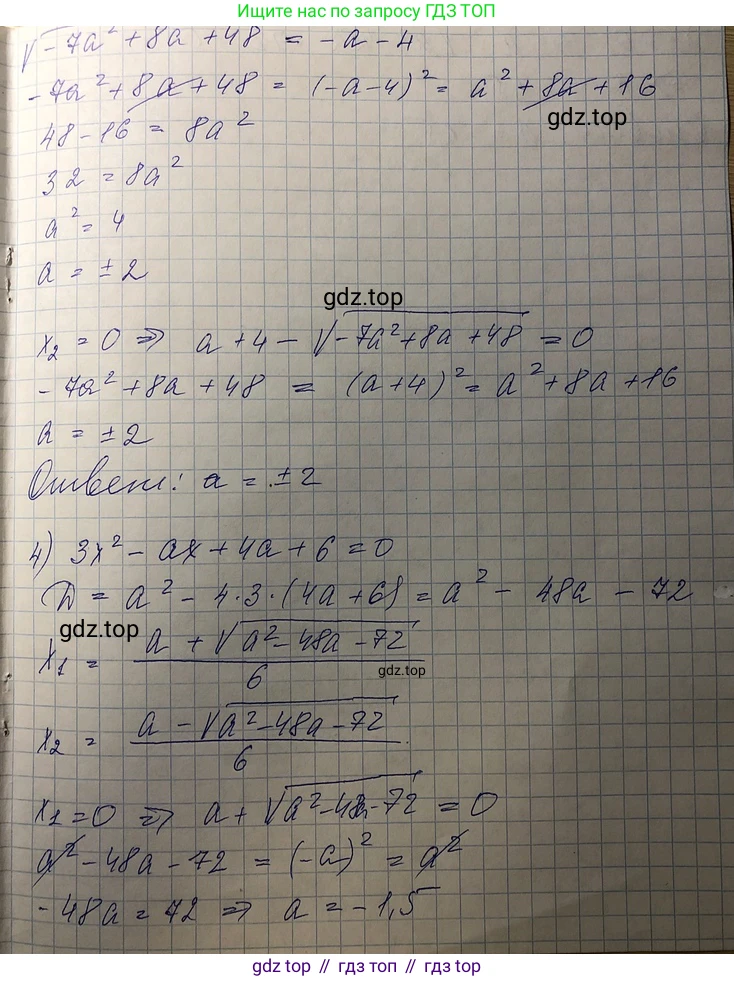 Ищите нас по запросу ГДЗ ТОП
√-7a² + 8a + 48 = -a - 4
-7a² + 8a + 48 = (-a-4)² = a² + 8a + 16
gdz.top
48 - 16 = 8a²
32 = 8a²
a² = 4
a = ±2
gdz.top
x₂ = 0 ⇒ a + 4 - √-7a² + 8a + 48 = 0
-7a² + 8a + 48 = (a+4)² = a² + 8a + 16
a = ±2
Ответ: a = ±2
4) 3x² - ax + 4a + 6 = 0
D = a² - 4·3·(4a+6) = a² - 48a - 72
gdz.top
x₁ = (a + √a² - 48a - 72)/6
gdz.top
x₂ = (a - √a² - 48a - 72)/6
x₁ = 0 ⇒ a + √a² - 48a - 72 = 0
a² - 48a - 72 = (-a)² = a²
-48a = 72 ⇒ a = -1,5
gdz.top // гдз топ // gdz.top